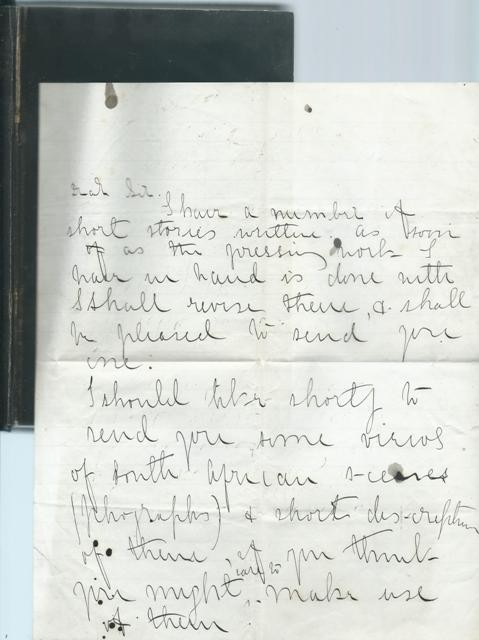 Dear Sir.
I have a number of
short stories written. As soon
of as the pressing work I
have in hand is done with
I shall revise them, & shall
be pleased to send you
one.
I should like shortly to
send you some views
of South African scenes
(photographs) & short description
of them if you think
you might care to make use
of them